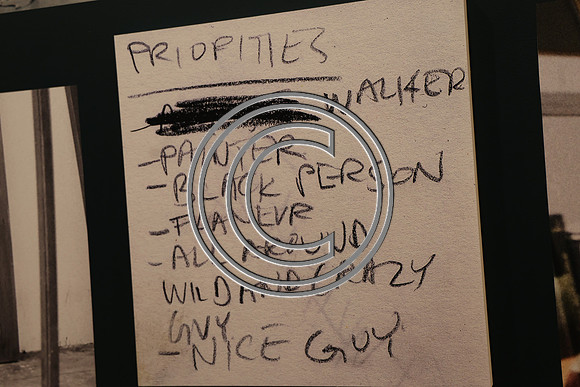 PRIOPITIES
WALKER
-PAINTER
-BLACK PERSON
-FLANEUR
-ALL AROUND
WILD AND CRAZY
GUY
-NICE GUY
©